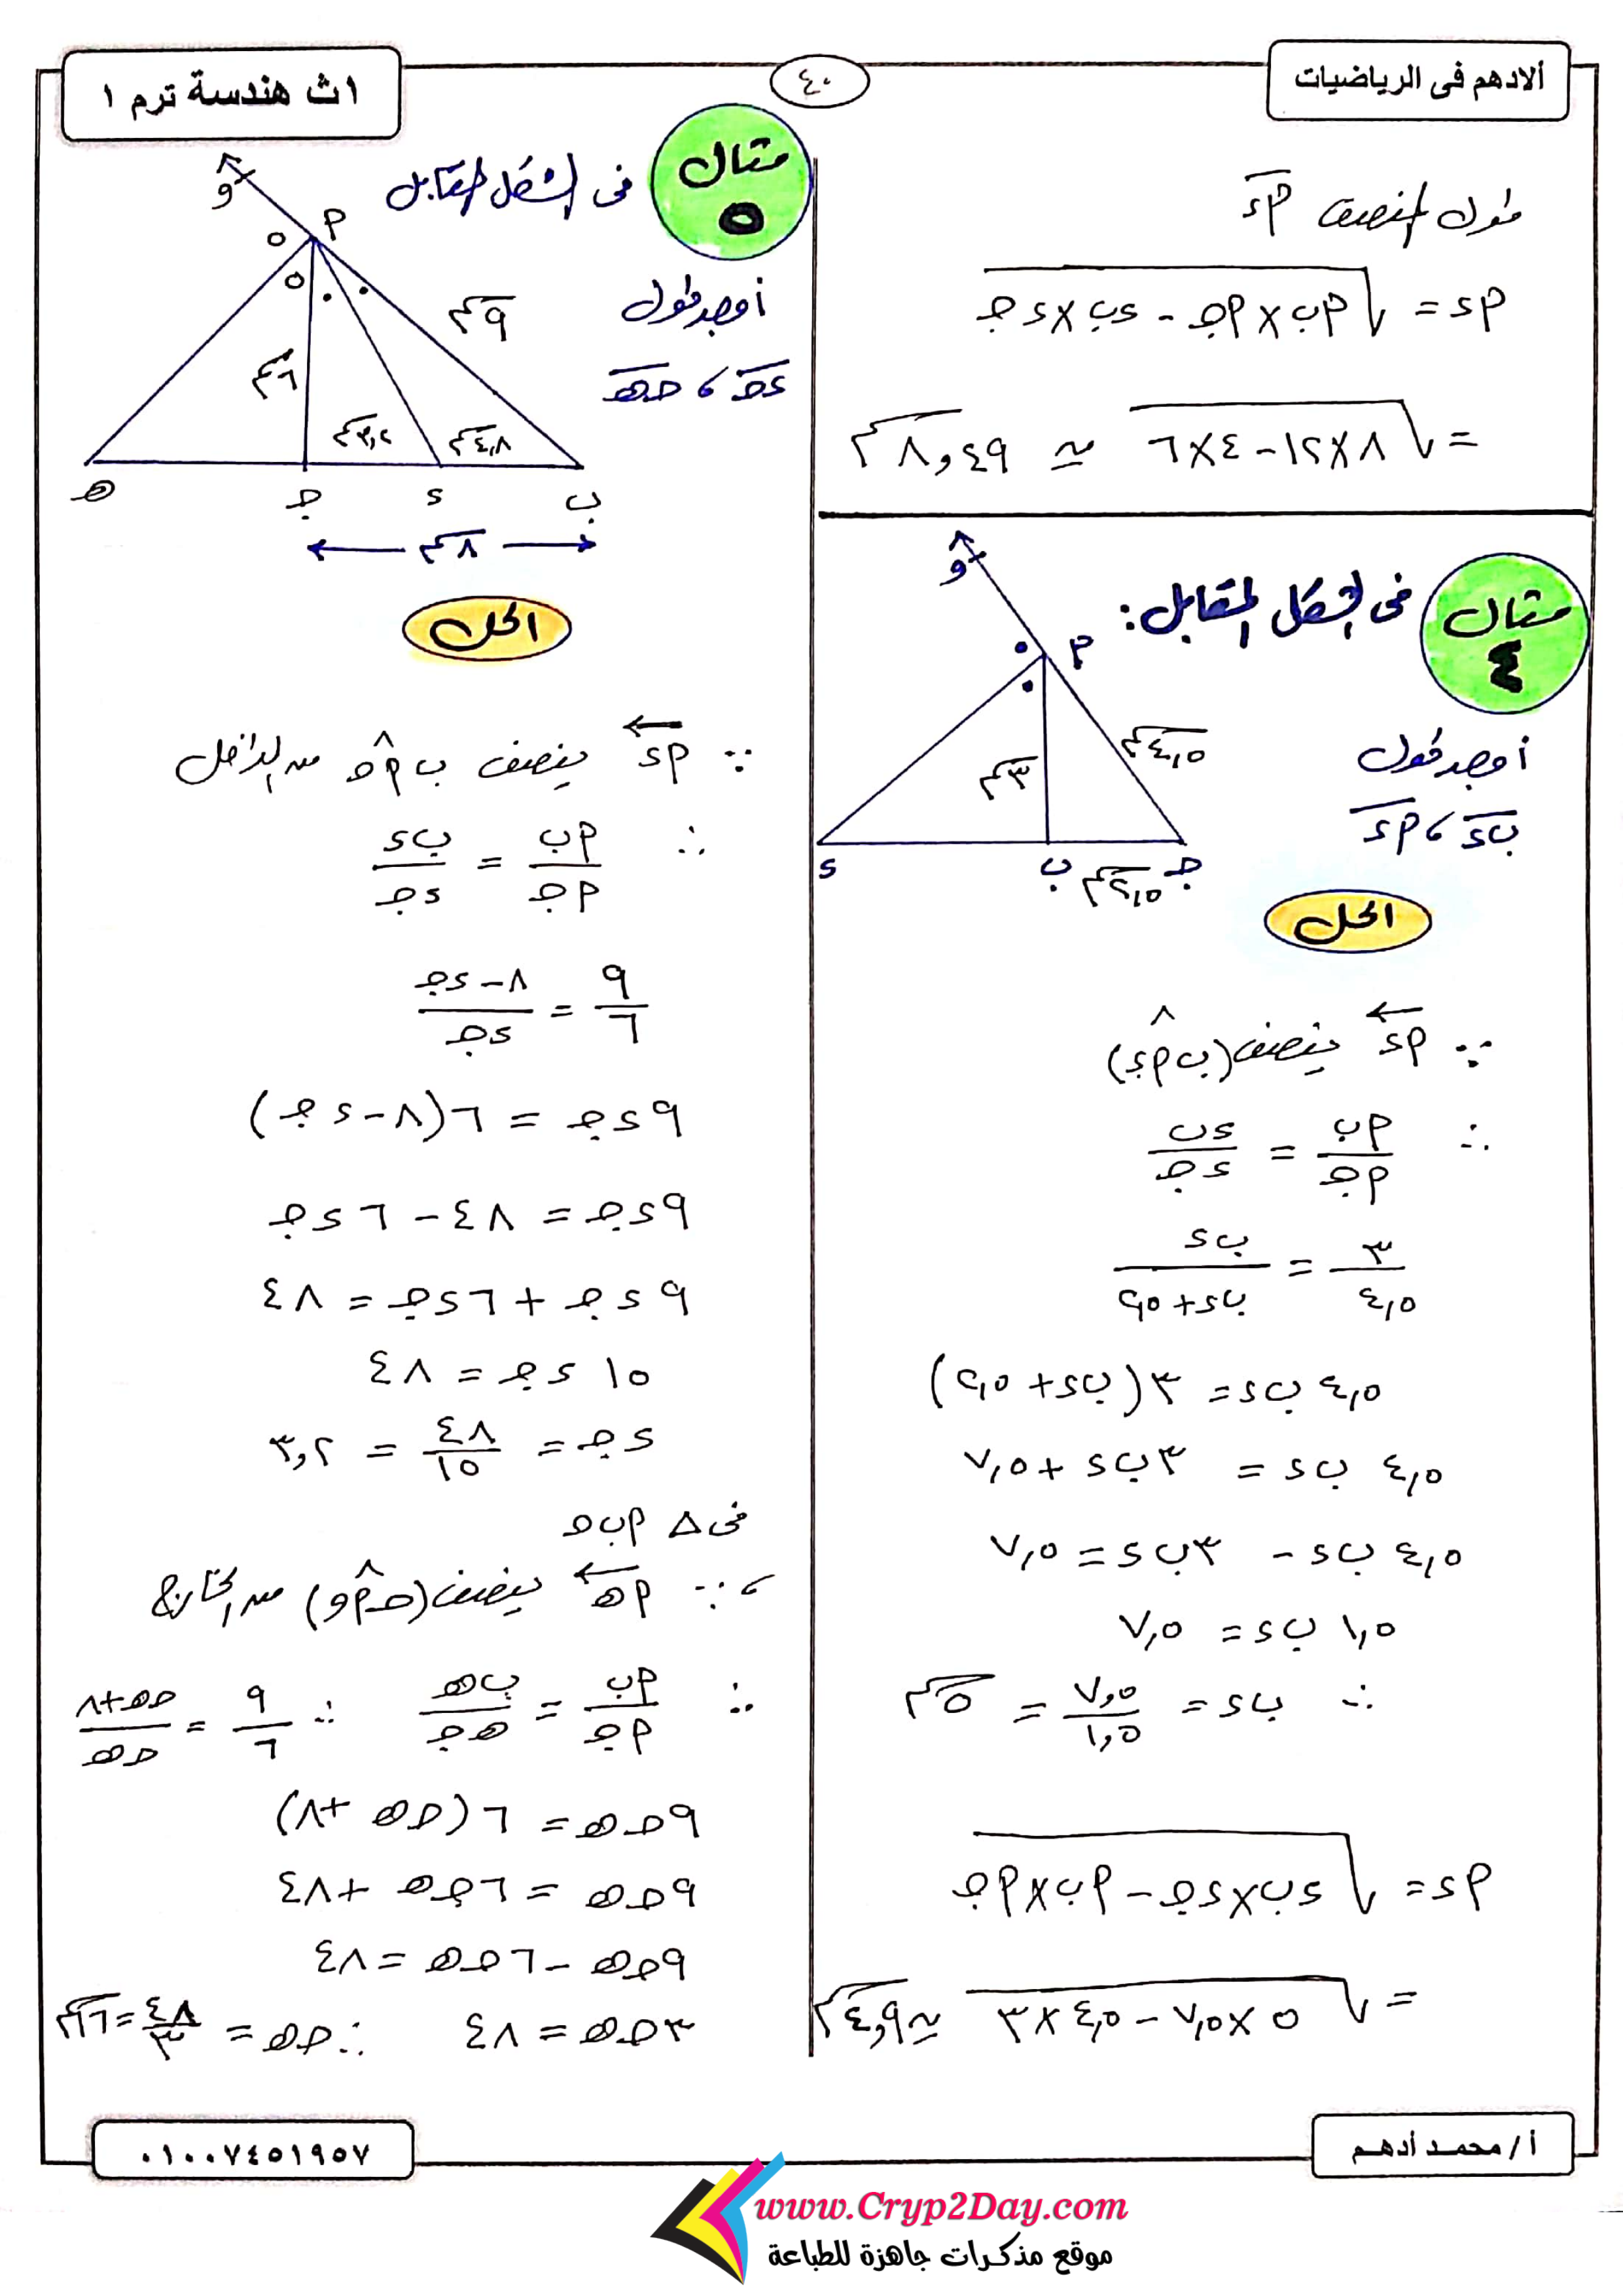 ألادهم فى الرياضيات
٤٠
١ث هندسة ترم ١
طول المنصف أد
أد = √(أب × أجـ - دب × دجـ)
= √(٨ × ١٢ - ٤ × ٦) ≃ ٨,٤٩ سم
مثال ٤
فى الشكل المقابل :
أوجد طول
بد ، أد
و
أ
٤,٥ سم
٣ سم
د
ب
٢,٥ سم
جـ
الحل
∵ أد ينصف (ب أ و)
∴ أب/أجـ = دب/دجـ
٣/٤,٥ = بد/(بد + ٢,٥)
٤,٥ بد = ٣ (بد + ٢,٥)
٤,٥ بد = ٣ بد + ٧,٥
٤,٥ بد - ٣ بد = ٧,٥
١,٥ بد = ٧,٥
∴ بد = ٧,٥/١,٥ = ٥ سم
أد = √(دب × دجـ - أب × أجـ)
= √(٥ × ٧,٥ - ٤,٥ × ٣) ≃ ٤,٩ سم
مثال ٥
فى الشكل المقابل
أوجد طول
دجـ ، جـهـ
و
أ
٩ سم
٦ سم
٣,٢ سم
٤,٨ سم
هـ
جـ
د
ب
٨ سم
الحل
∵ أد ينصف ب أ جـ من الداخل
∴ أب/أجـ = بد/دجـ
٩/٦ = (٨ - دجـ)/دجـ
٩ دجـ = ٦ (٨ - دجـ)
٩ دجـ = ٤٨ - ٦ دجـ
٩ دجـ + ٦ دجـ = ٤٨
١٥ دجـ = ٤٨
دجـ = ٤٨/١٥ = ٣,٢
فى △ أ ب جـ
، ∵ أهـ ينصف (جـ أ و) من الخارج
∴ أب/أجـ = بهـ/هـجـ ∴ ٩/٦ = (جـهـ + ٨)/جـهـ
٩ جـهـ = ٦ (جـهـ + ٨)
٩ جـهـ = ٦ جـهـ + ٤٨
٩ جـهـ - ٦ جـهـ = ٤٨
٣ جـهـ = ٤٨ ∴ جـهـ = ٤٨/٣ = ١٦ سم
أ/ محمد أدهم
٠١٠٠٧٤٥١٩٥٧
www.Cryp2Day.com
موقع مذكرات جاهزة للطباعة